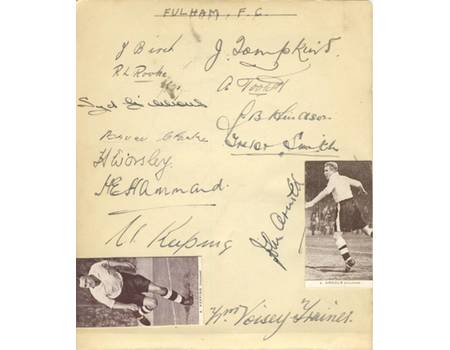 FULHAM, F.C.
J Birch
J. Tompkins.
R.L. Rooke
A Tootill
Syd Gibbons
J B Hindson
Bruce Clarke
Trevor Smith
H Worsley
H E Hammond.
M Keeping
John Arnold
J. ARNOLD
Wm Voisey "Trainer"